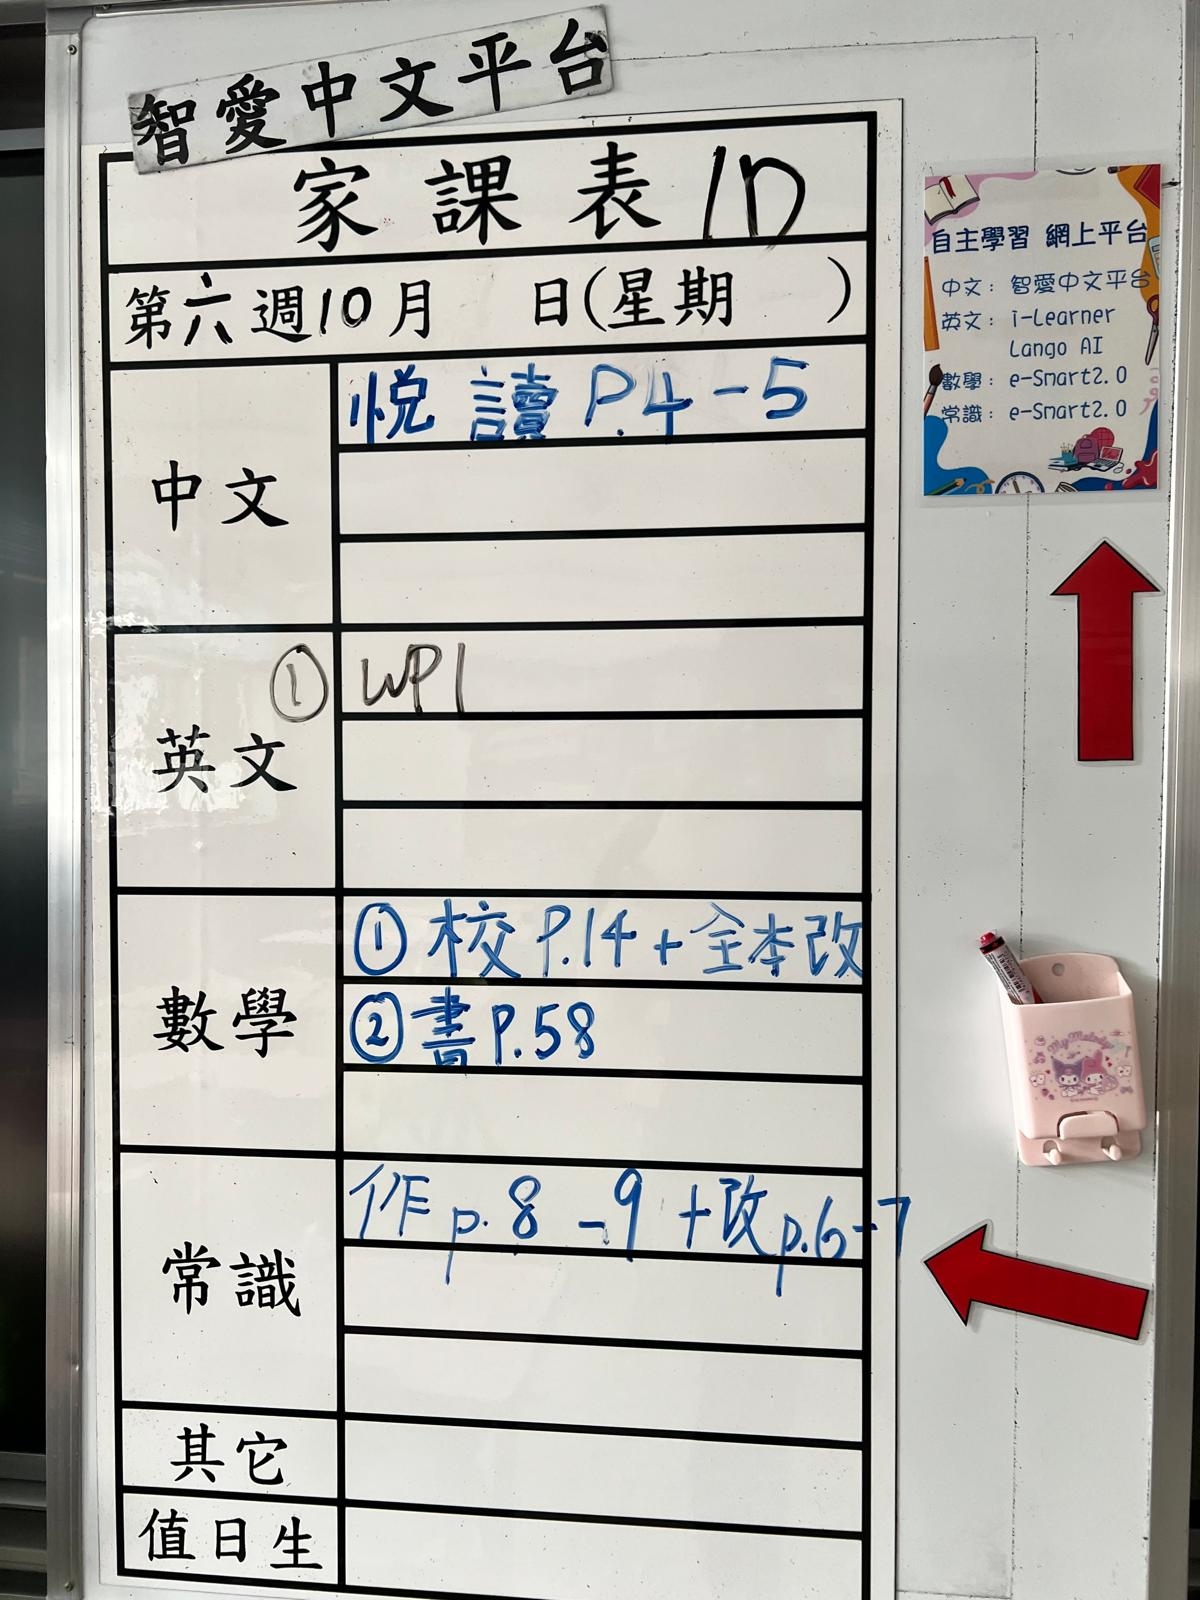 智愛中文平台
家課表 1D
第六週10月 日(星期 )
中文
悅讀 P.4-5
英文
① WP1
數學
① 校 P.14 + 全本改
② 書 P.58
常識
作 p.8-9 + 改 p.6-7
其它
值日生
自主學習 網上平台
中文：智愛中文平台
英文：i-Learner
Lango AI
數學：e-Smart2.0
常識：e-Smart2.0
My Melody